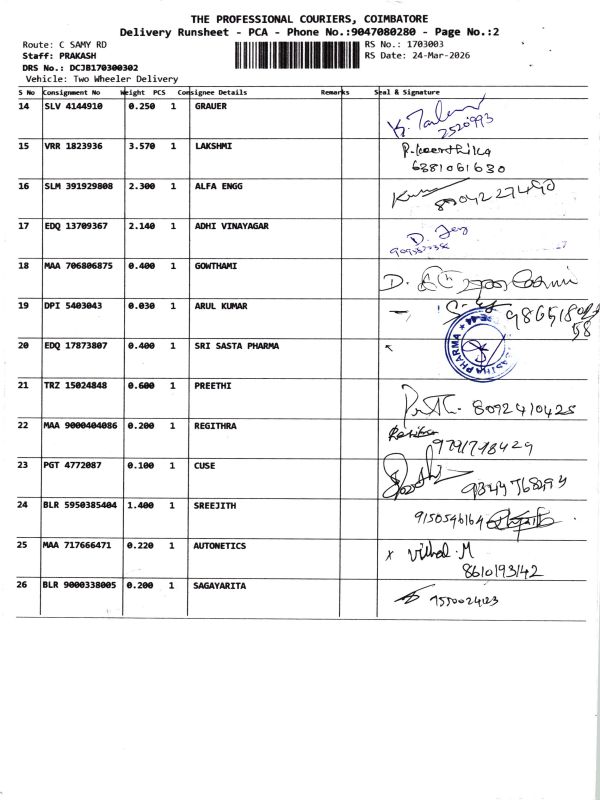 THE PROFESSIONAL COURIERS, COIMBATORE
Delivery Runsheet - PCA - Phone No.:9047080280 - Page No.:2
Route: C SAMY RD
RS No.: 1703003
Staff: PRAKASH
RS Date: 24-Mar-2026
DRS No.: DCJB170300302
Vehicle: Two Wheeler Delivery
S No Consignment No Weight PCS Consignee Details Remarks Seal & Signature
14 SLV 4144910 0.250 1 GRAUER
2520993
15 VRR 1823936 3.570 1 LAKSHMI P. keerthika
6381061630
16 SLM 391929808 2.300 1 ALFA ENGG
17 EDQ 13709367 2.140 1 ADHI VINAYAGAR
18 MAA 706806875 0.400 1 GOWTHAMI D.
19 DPI 5403043 0.030 1 ARUL KUMAR
20 EDQ 17873807 0.400 1 SRI SASTA PHARMA PHARMA
21 TRZ 15024848 0.600 1 PREETHI
8092410425
22 MAA 9000404086 0.200 1 REGITHRA
9791798429
23 PGT 4772087 0.100 1 CUSE
24 BLR 5950385404 1.400 1 SREEJITH 9150546164
25 MAA 717666471 0.220 1 AUTONETICS x Vishal.M
8610193142
26 BLR 9000338005 0.200 1 SAGAYARITA